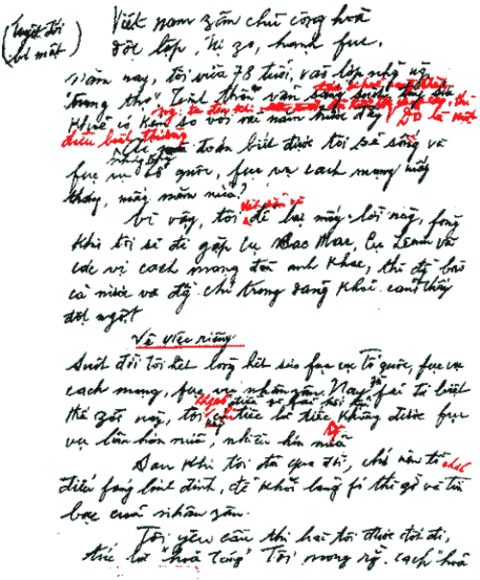 (Tuyệt đối
bí mật)
Việt nam zân chủ cộng hoà
độc lập, tự zo, hạnh fúc.
năm nay, tôi vừa 78 tuổi, vào lớp những ng
"trung thọ". Tinh thần vẫn sáng suốt,
khoẻ có kém so với vài năm trước đây. Đó là một
điều bình thường
Ai mà đoán biết được tôi sẽ sống và
fục vụ tổ quốc, fục vụ cách mạng mấy
tháng, mấy năm nữa?
Vì vậy, tôi để lại mấy lời này, fòng
khi tôi sẽ đi gặp cụ Các Mác, cụ Lênin và
các vị cách mạng đàn anh khác, thì đ/bào
cả nước và đ/chí trong đảng khỏi cảm thấy
đột ngột
Về việc riêng
Suốt đời tôi hết lòng hết sức fục vụ Tổ quốc, fục vụ
cách mạng, fục vụ nhân zân. Nay zù fải từ biệt
thế zới này, tôi không có điều gì fải hối hận, chỉ tiếc là tiếc không được fục
vụ lâu hơn nữa, nhiều hơn nữa
Sau khi tôi đã qua đời, chớ nên tổ chức
điếu fúng linh đình, để khỏi lãng fí thì giờ và tiền
bạc của nhân zân.
Tôi yêu cầu thi hài tôi được đốt đi,
tức là "hoả táng". Tôi mong rằng cách "hoả